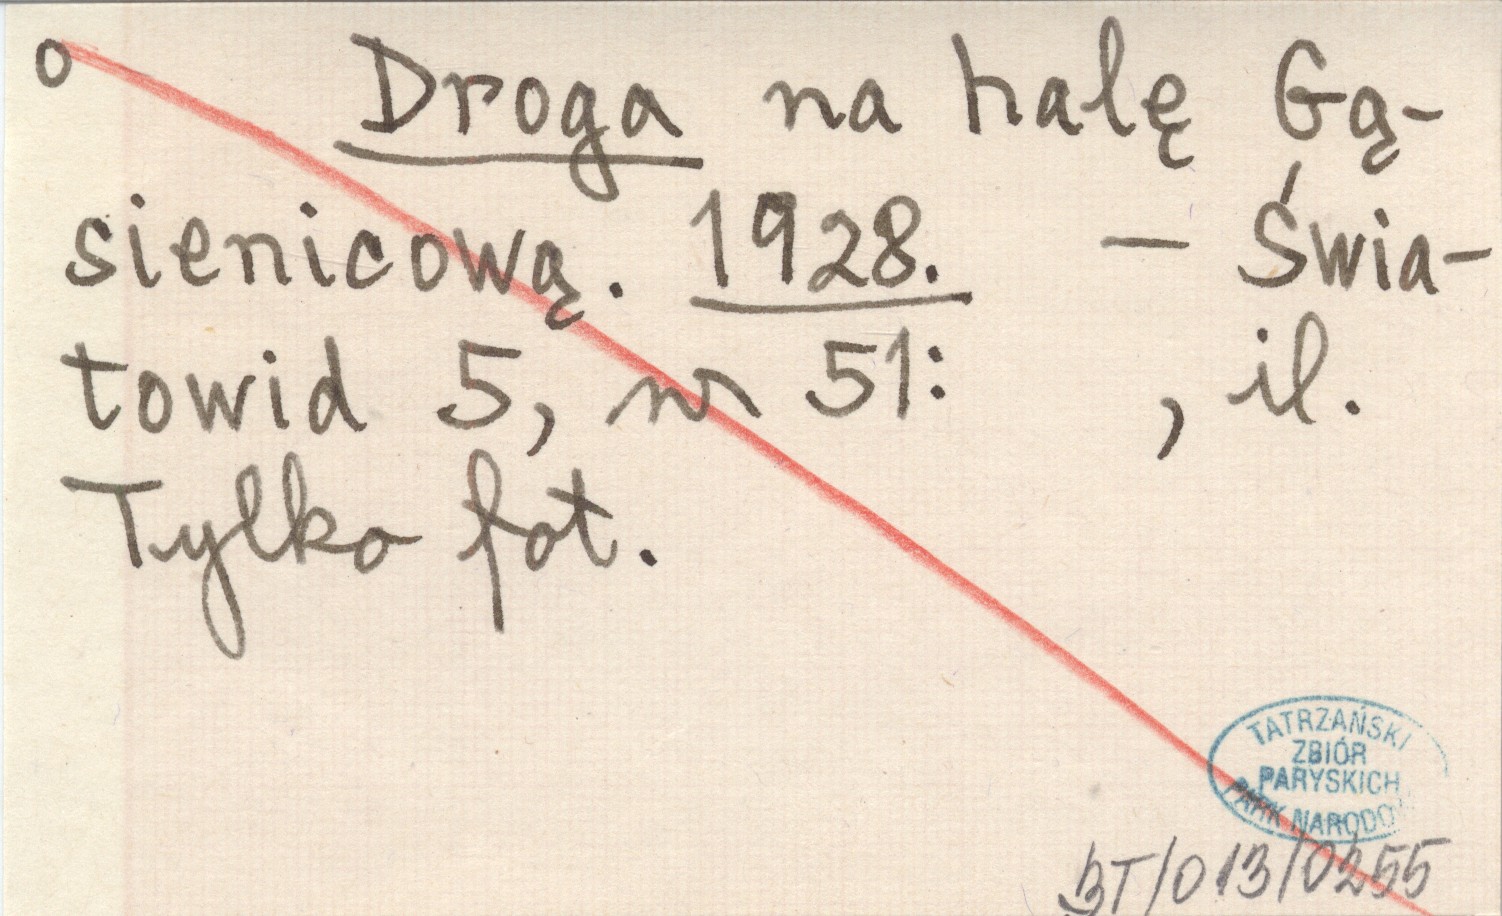 o Droga na halę Gą-
sienicową. 1928. — Świa-
towid 5, nr 51: , il.
Tylko fot.
TATRZAŃSKI
ZBIÓR
PARYSKICH
PARK NARODO
BT/013/0255